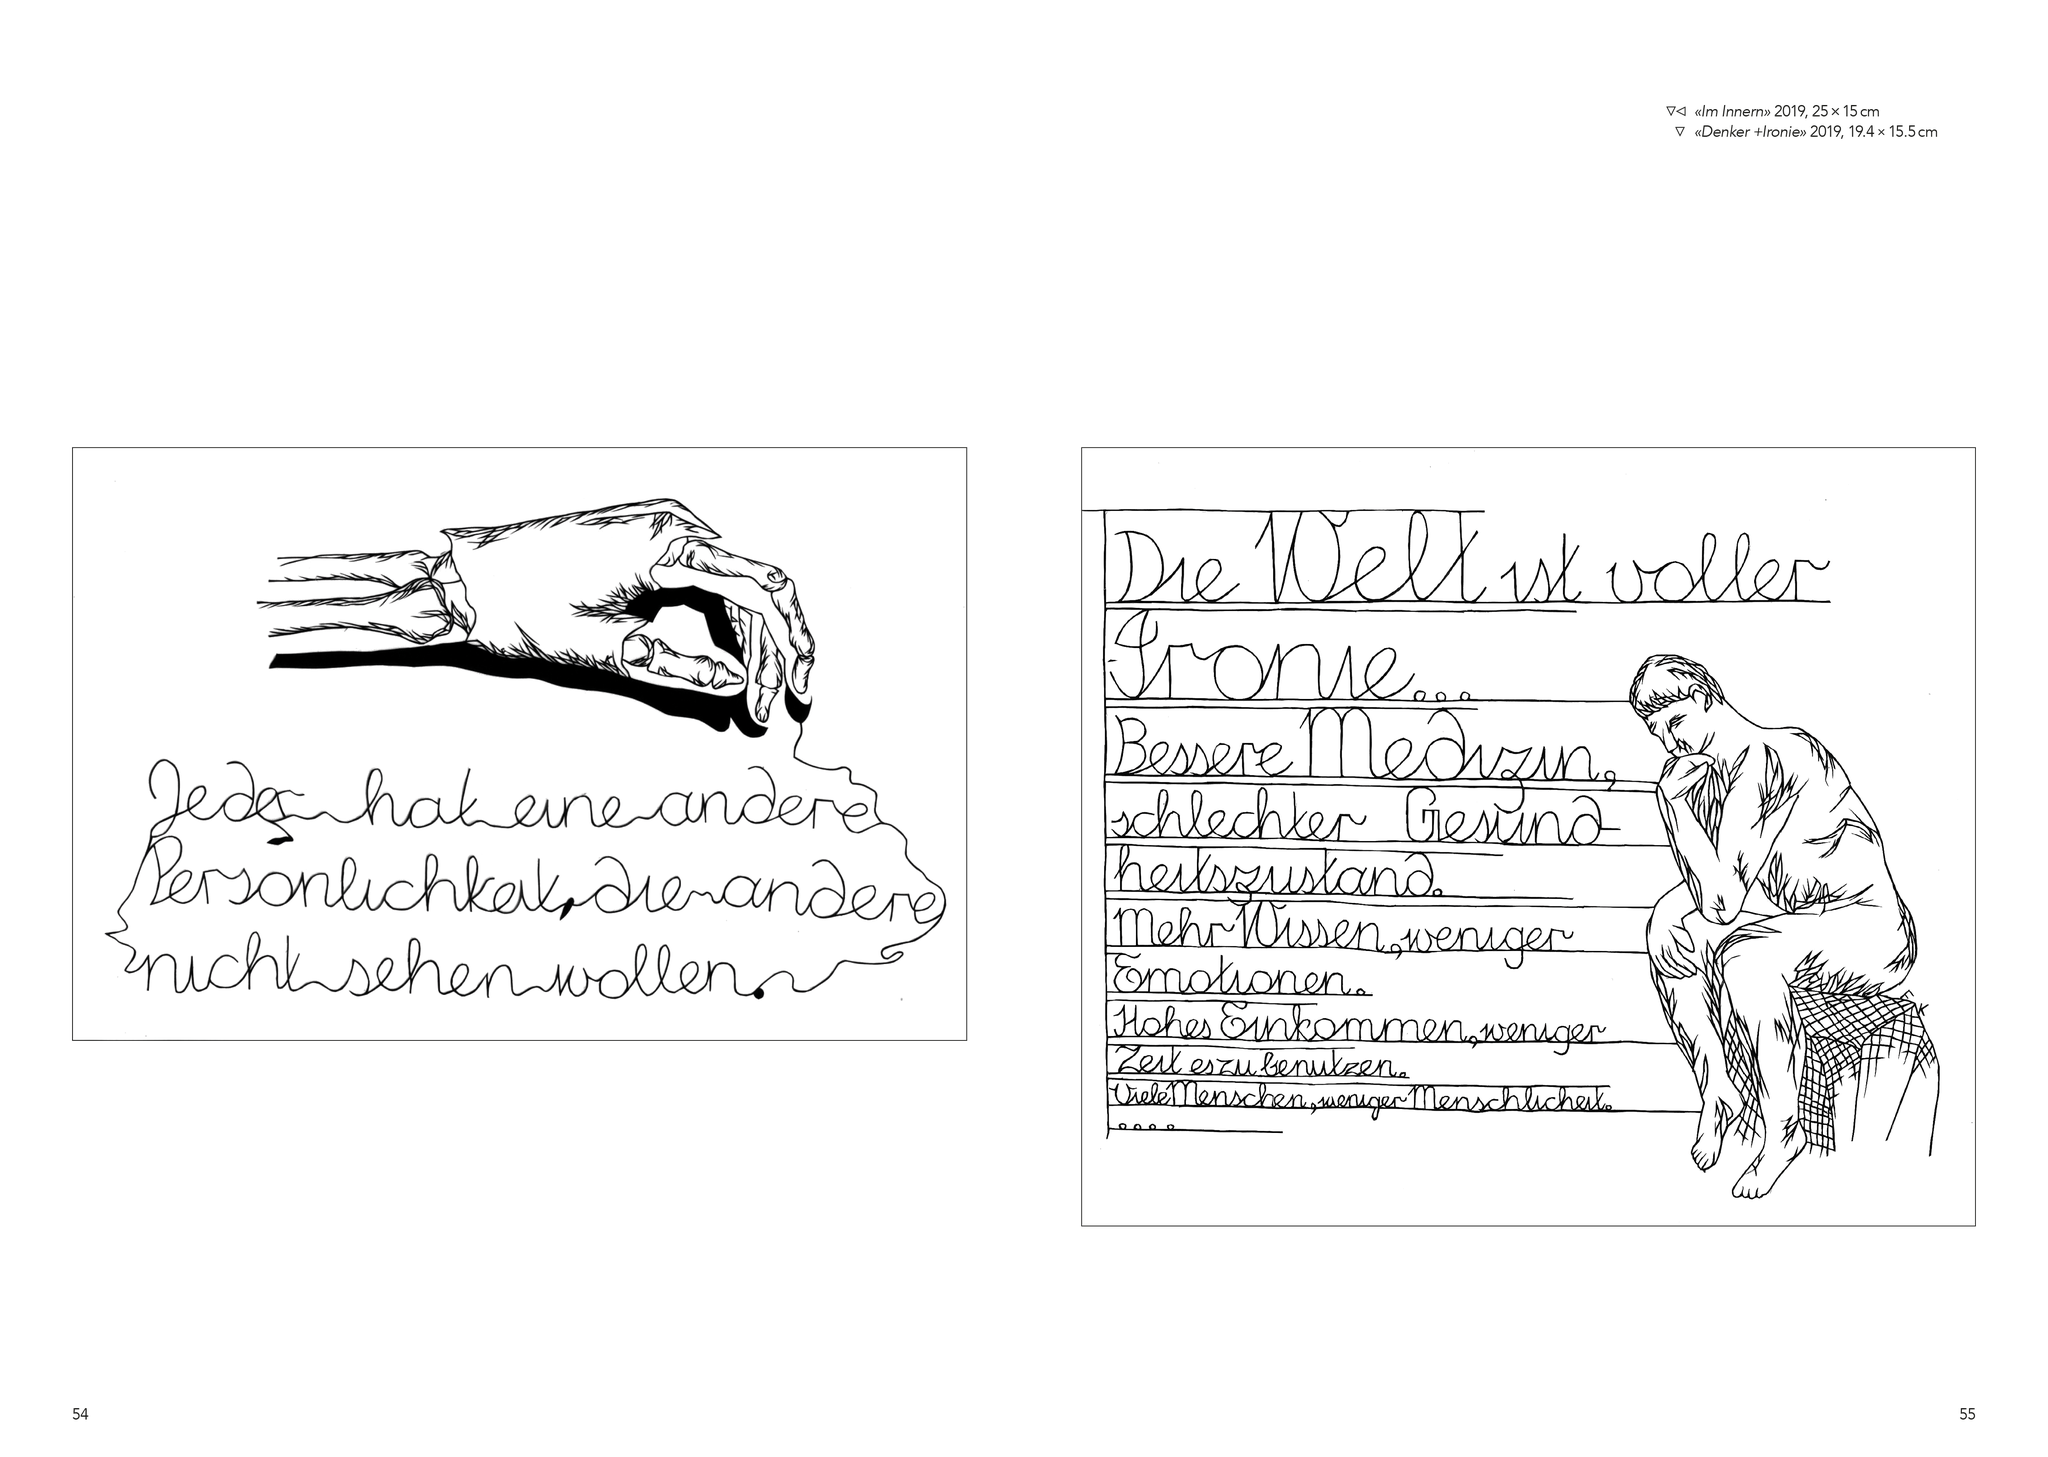 ▽◁ «Im Innern» 2019, 25 × 15 cm
▽ «Denker +Ironie» 2019, 19.4 × 15.5 cm
Jeder hat eine andere
Persönlichkeit, die andere
nicht sehen wollen.
Die Welt ist voller
Ironie...
Bessere Medizin,
schlechter Gesund-
heitszustand.
Mehr Wissen, weniger
Emotionen.
Hohes Einkommen, weniger
Zeit es zu benutzen.
Viele Menschen, weniger Menschlicheit.
....
54
55